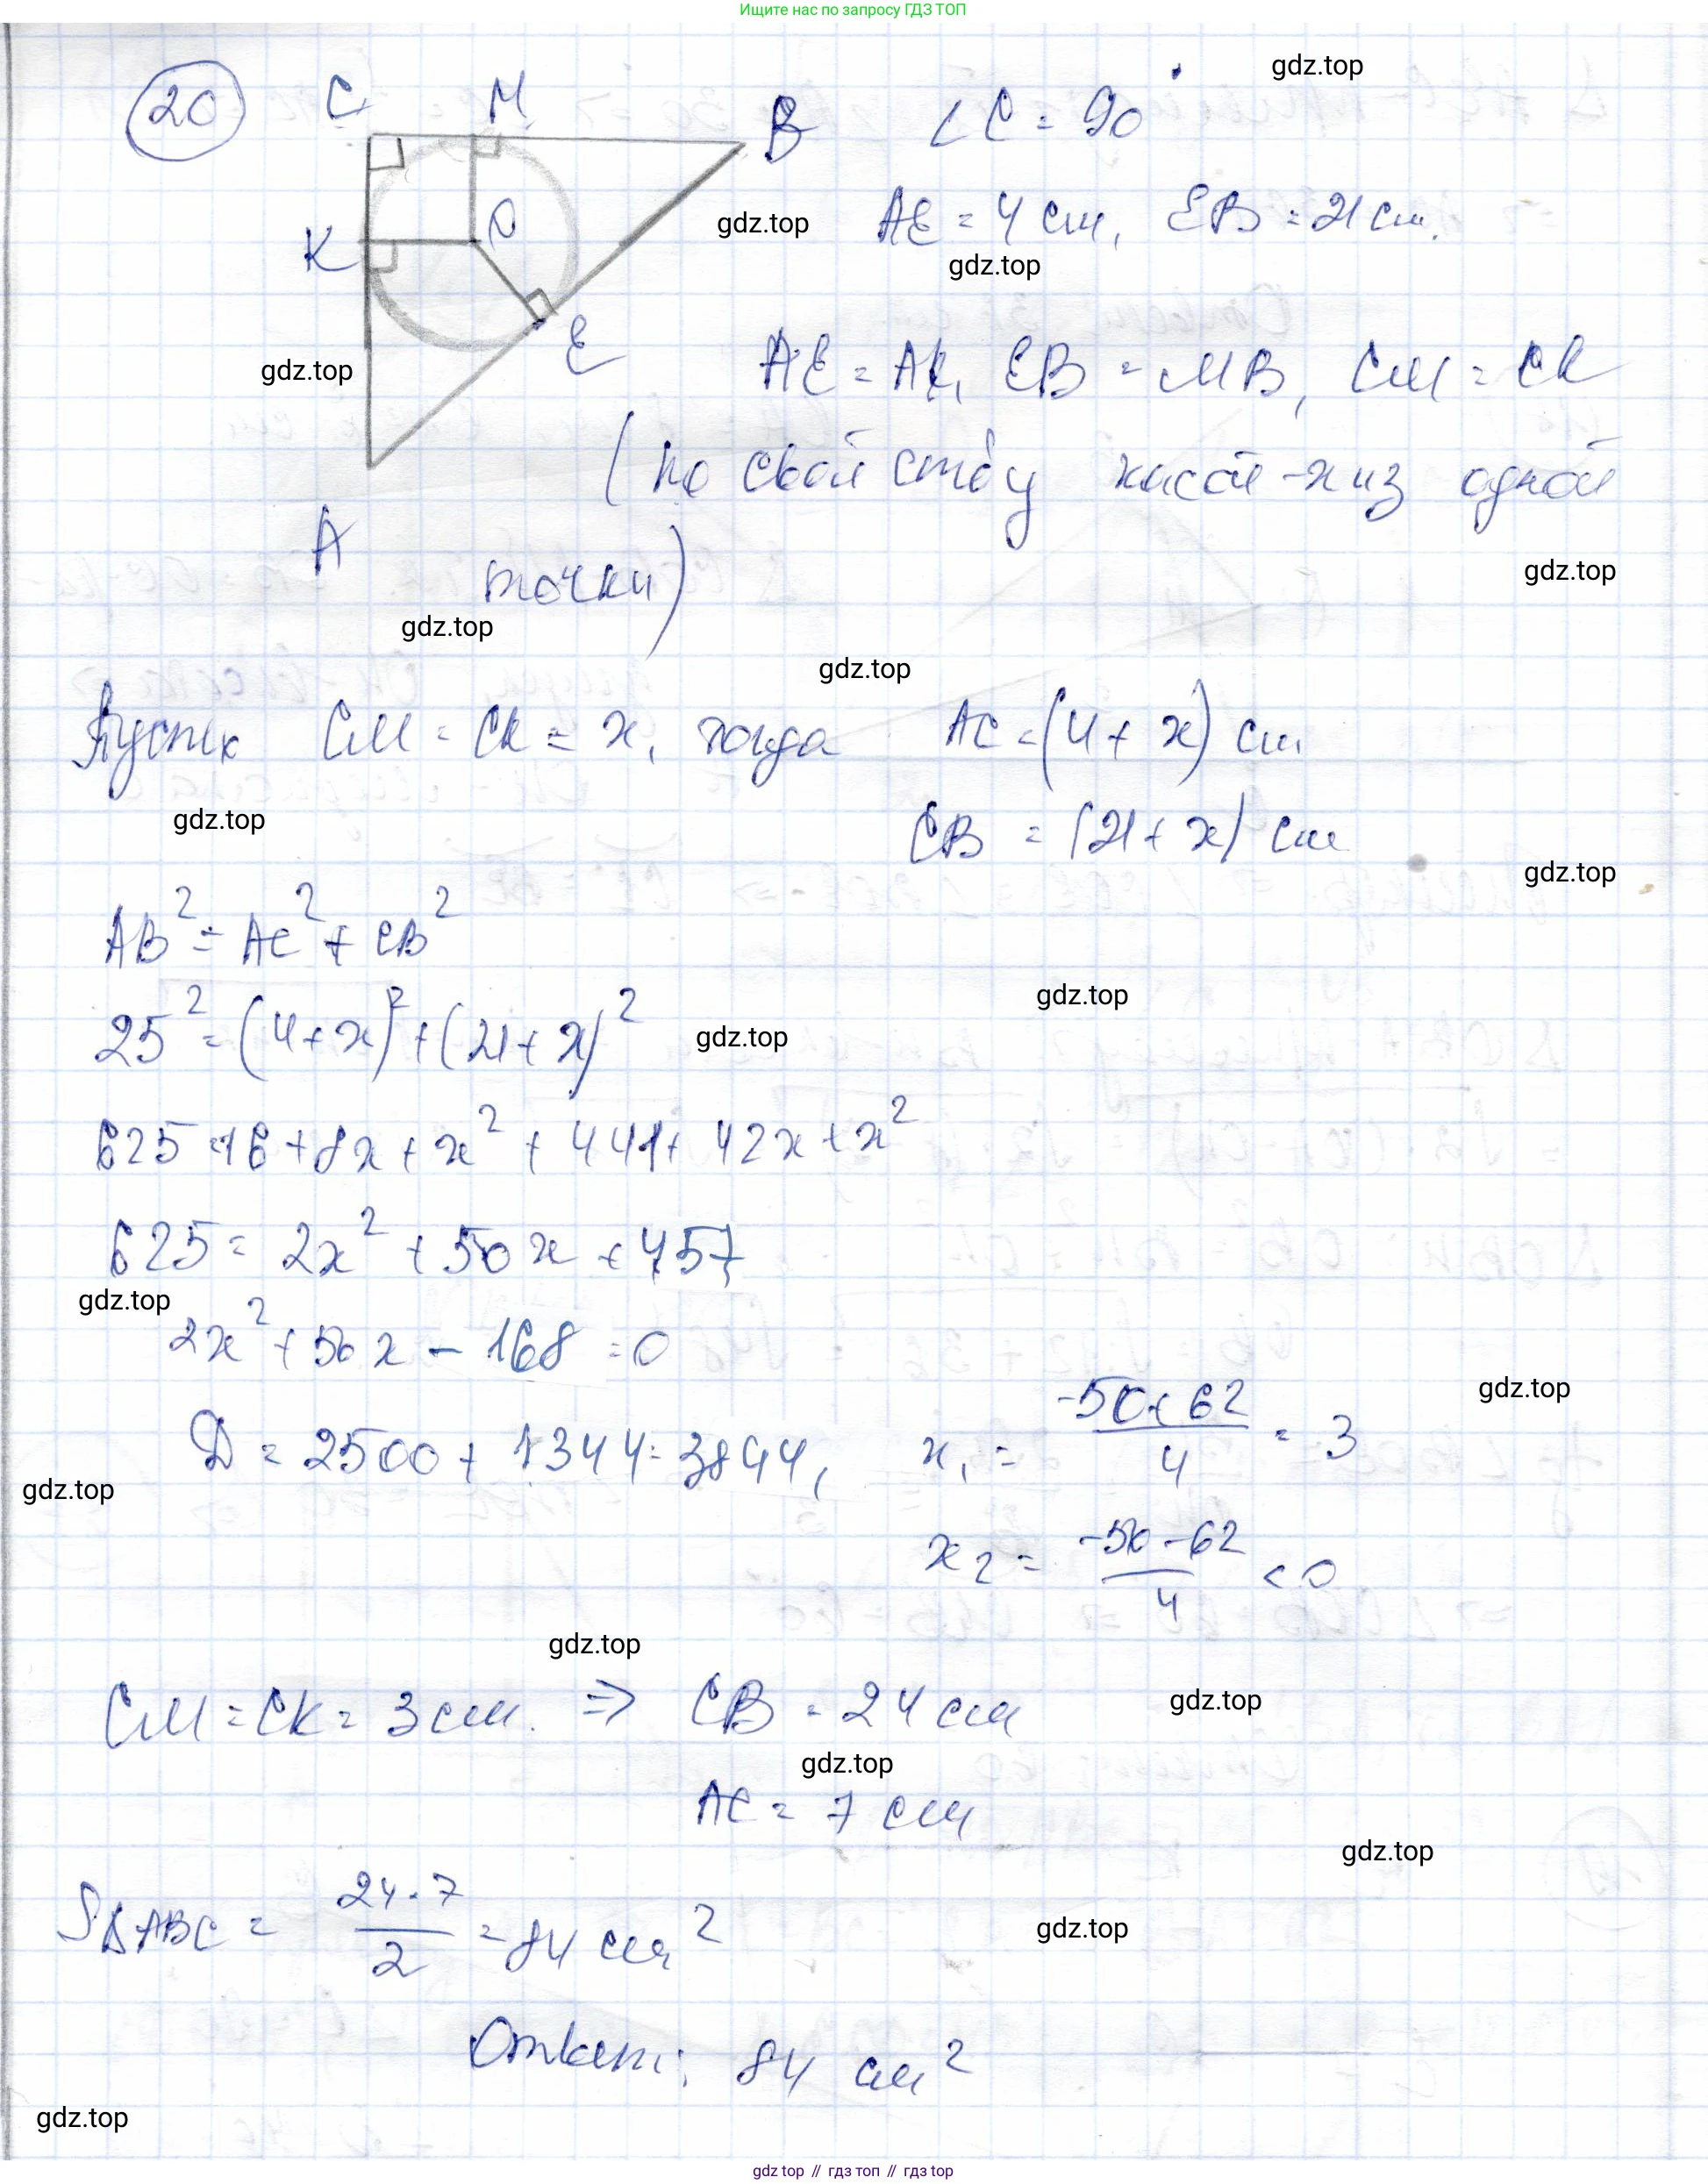 Ищите нас по запросу ГДЗ ТОП
20
C M B ∠C = 90
gdz.top
K O E A
AE = 4 см, EB = 21 см.
gdz.top
gdz.top
gdz.top
AE = AK, EB = MB, CM = CK
(по свойству касат-х из одной
точки)
gdz.top
gdz.top
gdz.top
Пусть CM = CK = x, тогда AC = (4 + x) см
gdz.top
CB = (21 + x) см
gdz.top
AB² = AC² + CB²
gdz.top
25² = (4 + x)² + (21 + x)²
gdz.top
625 = 16 + 8x + x² + 441 + 42x + x²
625 = 2x² + 50x + 457
gdz.top
2x² + 50x - 168 = 0
gdz.top
D = 2500 + 1344 = 3844, x₁ = (-50 + 62)/4 = 3
gdz.top
x₂ = (-50 - 62)/4 < 0
gdz.top
CM = CK = 3 см. ⇒ CB = 24 см
gdz.top
gdz.top
AC = 7 см
gdz.top
S△ABC = (24 · 7)/2 = 84 см²
gdz.top
Ответ: 84 см²
gdz.top
gdz top // гдз топ // гдз top